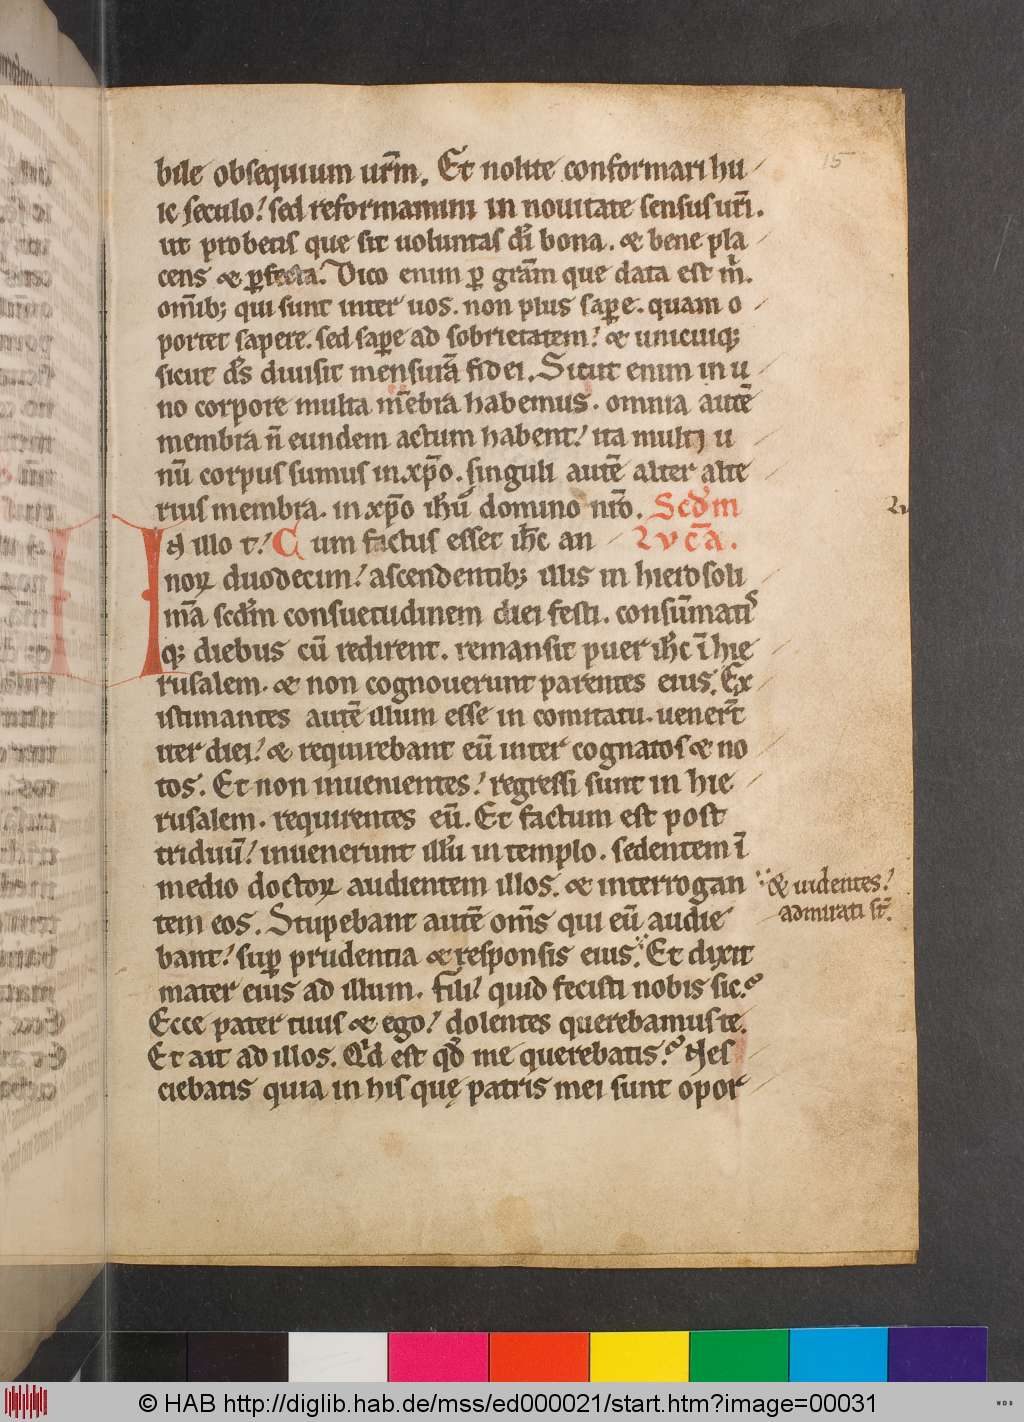 15
bile obsequium ur̄m. Et nolite conformari hu
ic seculo! sed reformamini in nouitate sensus ur̄i.
ut probetis que sit uoluntas dī bona. & bene pla
cens & ꝑfecta. Dico enim ꝑ grām que data est m̄.
om̄ib; qui sunt inter uos. non plus saꝑe. quam o
portet sapere. sed saꝑe ad sobrietatem! & unicuiq;
sicut ds̄ diuisit mensurā fidei. Sicut enim in u
no corpore multa m̄ebra habemus. omnia autē
membra n̄ eundem actum habent! ita multi u
nū corpus sumus in xp̄o. singuli autē alter alte
rius membra. in xp̄o ih̄u domino nr̄o. Scd̄m
In illo t! Cum factus esset ih̄c an Lucā.
noꝝ duodecim! ascendentib; illis in hierosoli
mā scd̄m consuetudinem diei festi. consūmatis
q; diebus cū redirent. remansit puer ih̄c ī hie
rusalem. & non cognouerunt parentes eius. Ex
istimantes autē illum esse in comitatu. uener̄t
iter diei! & requirebant eū inter cognatos & no
tos. Et non inuenientes! regressi sunt in hie
rusalem. requirentes eū. Et factum est post
triduū! inuenerunt illū in templo. sedentem ī
medio doctoꝝ audientem illos. & interrogan
tem eos. Stupebant autē om̄s qui eū audie
bant! suꝑ prudentia & responsis eius. Et dixit
& uidentes!
admirati st̄.
mater eius ad illum. Fili! quid fecisti nobis sic?
Ecce pater tuus & ego! dolentes querebamus te.
Et ait ad illos. Qd est qd̄ me querebatis? Nes
ciebatis quia in his quę patris mei sunt opor
© HAB http://diglib.hab.de/mss/ed000021/start.htm?image=00031